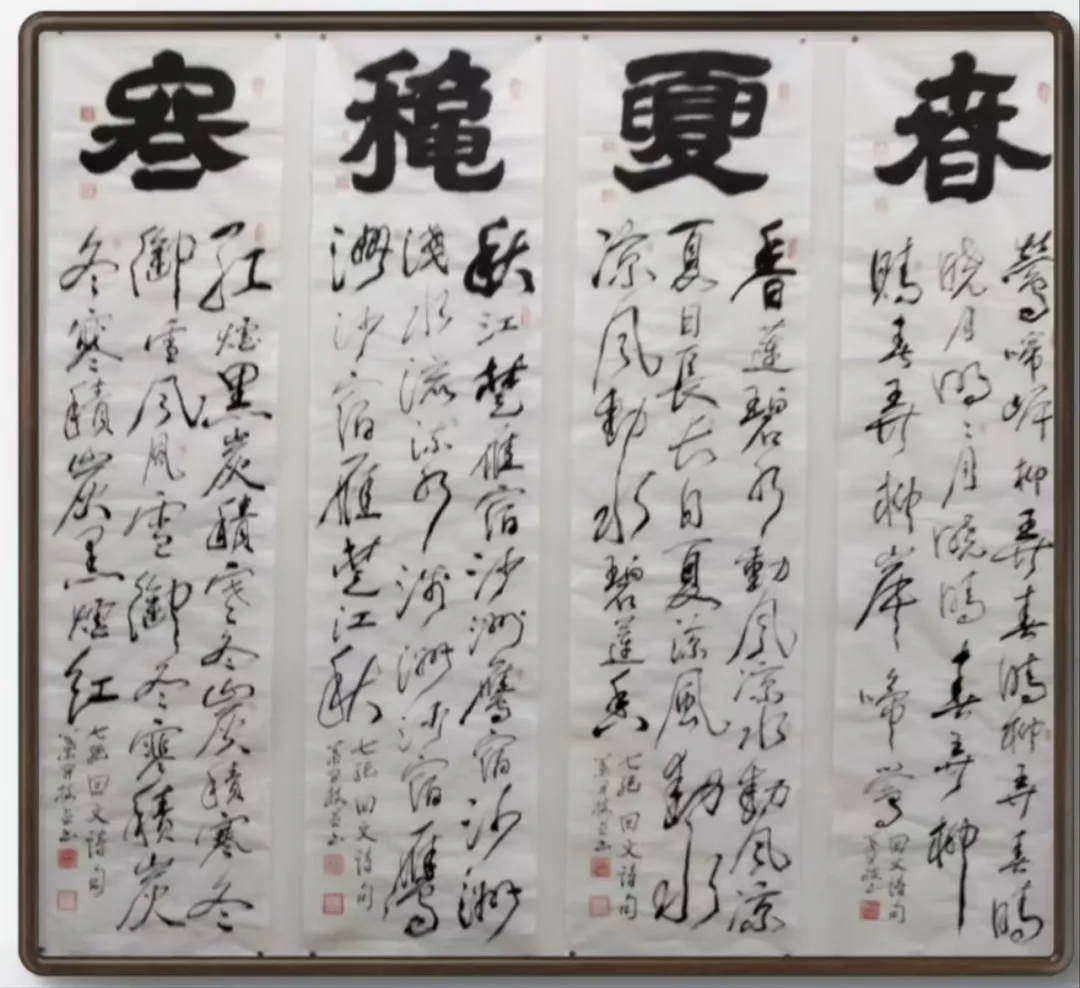 春
鶯啼岸柳弄春晴柳弄春晴
曉月明〻月曉晴春弄柳
晴春弄柳岸啼鶯
回文诗句
夏
香蓮碧水動風凉水動風凉
夏日長長日夏凉風動水
凉風動水碧蓮香
七絕回文诗句
穐
秋江楚雁宿沙洲鴈宿沙洲
淺水流流水淺洲沙宿鴈
洲沙宿雁楚江秋
七絕回文诗句
寒
红爐黑炭積寒冬炭積寒冬
御雪風風雪御冬寒積炭
冬寒積炭黑爐红
七絕回文诗句